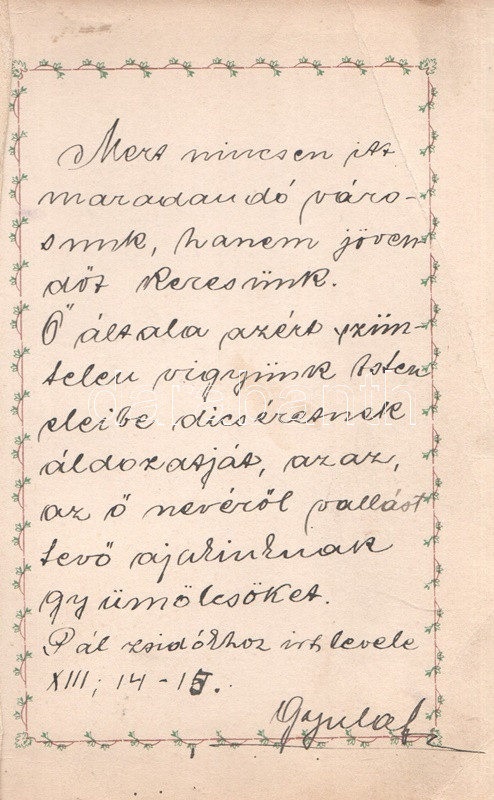 Mert nincsen itt
maradandó váro-
sunk, hanem jöven
dőt keresünk.
Ő általa azért szün-
telen vigyünk Isten
eleibe dicséretnek
áldozatját, azaz,
az ő nevéről vallást
tevő ajakinknak
gyümölcsöket.
Pál zsidókhoz írt levele
XIII; 14-15.
Gyula
darabanth